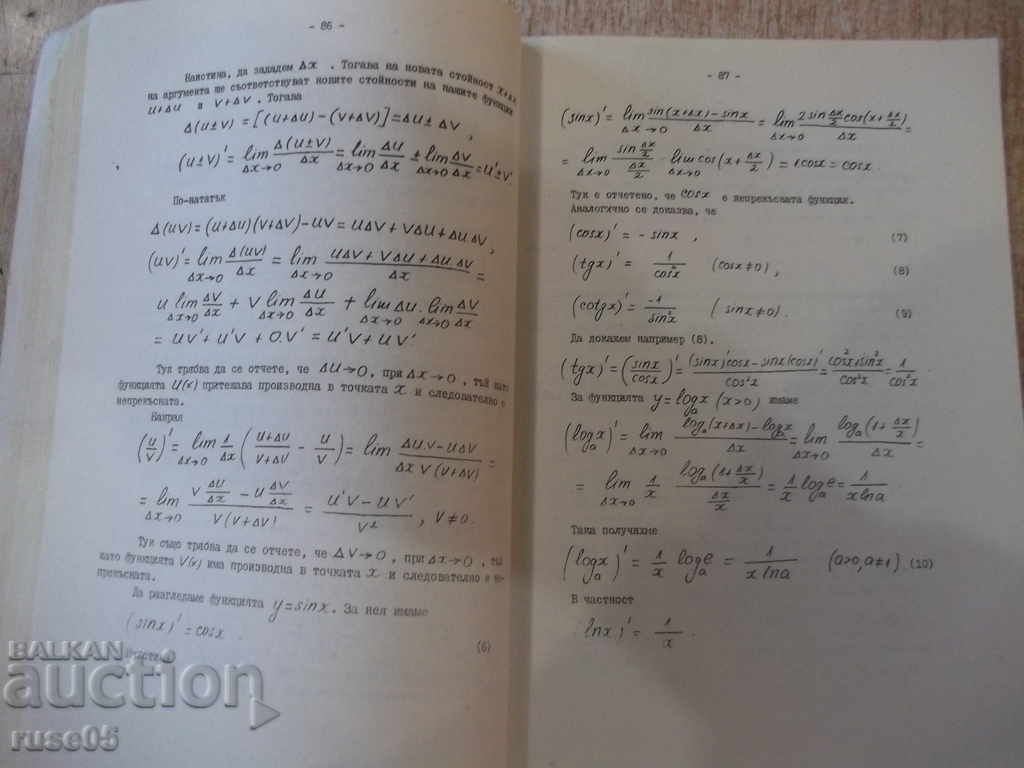 - 86 -
Наистина, да зададем Δx . Тогава на новата стойност x+Δx
на аргумента ще съответствуват новите стойности на нашите функции
u+Δu и v+Δv . Тогава
Δ(u±v) = [(u+Δu)-(v+Δv)] = Δu ± Δv ,
(u±v)' = lim_{Δx→0} Δ(u±v)/Δx = lim_{Δx→0} Δu/Δx ± lim_{Δx→0} Δv/Δx = u'±v'.
По-нататък
Δ(uv) = (u+Δu)(v+Δv)-uv = uΔv + vΔu + Δu Δv ,
(uv)' = lim_{Δx→0} Δ(uv)/Δx = lim_{Δx→0} (uΔv + vΔu + Δu Δv)/Δx =
u lim_{Δx→0} Δv/Δx + v lim_{Δx→0} Δu/Δx + lim_{Δx→0} Δu . lim_{Δx→0} Δv/Δx
= uv' + u'v + 0.v' = u'v + uv'
Тук трябва да се отчете, че Δu→0 , при Δx→0 , тъй като
функцията u(x) притежава производна в точката x и следователно е
непрекъсната.
Накрая
(u/v)' = lim_{Δx→0} 1/Δx ( (u+Δu)/(v+Δv) - u/v ) = lim (Δu.v - uΔv)/(Δx v(v+Δv)) =
= lim_{Δx→0} (v Δu/Δx - u Δv/Δx)/(v(v+Δv)) = (u'v - uv')/v² , v≠0.
Тук също трябва да се отчете, че Δv→0 , при Δx→0 , тъй
като функцията v(x) има производна в точката x и следователно е не-
прекъсната.
Да разгледаме функцията y = sinx. За нея имаме
(sinx)' = cosx (6)
BALKAN
auction
ruse05
- 87 -
(sinx)' = lim_{Δx→0} (sin(x+Δx) - sinx)/Δx = lim_{Δx→0} (2 sin Δx/2 cos(x+Δx/2))/Δx =
= lim_{Δx→0} (sin Δx/2)/(Δx/2) . lim_{Δx→0} cos(x+Δx/2) = 1cosx = cosx .
Тук е отчетено, че cosx е непрекъсната функция.
Аналогично се доказва, че
(cosx)' = - sinx , (7)
(tgx)' = 1/cos²x (cosx≠0) , (8)
(cotgx)' = -1/sin²x (sinx≠0) . (9)
Да докажем например (8).
(tgx)' = (sinx/cosx)' = ((sinx)'cosx - sinx(cosx)')/cos²x = (cos²x+sin²x)/cos²x = 1/cos²x
За функцията y = log_a x (x>0) имаме
(log_a x)' = lim_{Δx→0} (log_a(x+Δx) - log_a x)/Δx = lim_{Δx→0} log_a(1+Δx/x)/Δx =
= lim_{Δx→0} 1/x log_a(1+Δx/x)/(Δx/x) = 1/x log_a e = 1/(x lna)
Така получихме
(log_a x)' = 1/x log_a e = 1/(x lna) (a>0, a≠1) . (10)
В частност
lnx)' = 1/x .